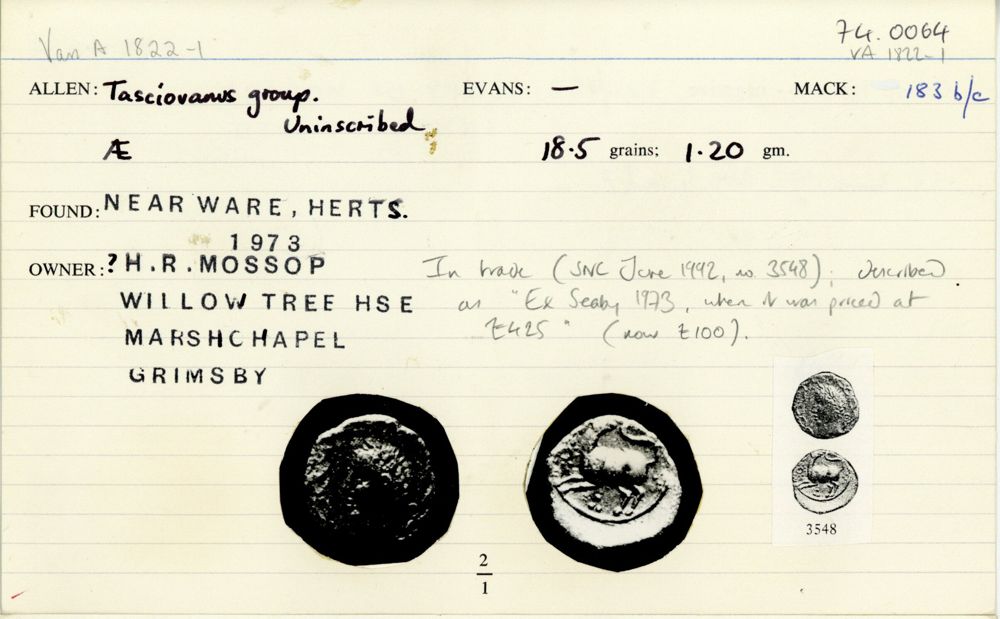 Van A 1822-1
74.0064
VA 1822-1
ALLEN: Tasciovanus group. EVANS: — MACK: 183 b/c
Uninscribed
Æ 18.5 grains; 1.20 gm.
FOUND: NEAR WARE, HERTS.
1973
OWNER: ? H.R. MOSSOP
WILLOW TREE HSE
MARSHCHAPEL
GRIMSBY
In trade (SNC June 1992, no. 3548); described
as "Ex Seaby 1973, when it was priced at
£425" (now £100).
3548
2
1